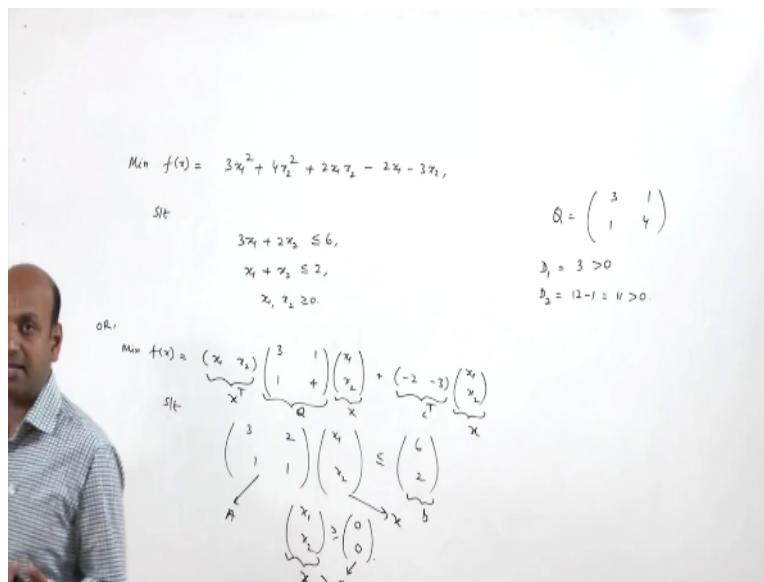 Min f(x) = 3x₁² + 4x₂² + 2x₁x₂ - 2x₁ - 3x₂,
S/t
3x₁ + 2x₂ ≤ 6,
x₁ + x₂ ≤ 2,
x₁, x₂ ≥ 0.
Q = ( 3 1
1 4 )
D₁ = 3 > 0
D₂ = 12 - 1 = 11 > 0.
OR,
Min f(x) = (x₁ x₂) ( 3 1 ; 1 4 ) ( x₁ ; x₂ ) + (-2 -3) ( x₁ ; x₂ )
xᵀ Q x cᵀ x
S/t
( 3 2 ; 1 1 ) ( x₁ ; x₂ ) ≤ ( 6 ; 2 )
A x b
( x₁ ; x₂ ) ≥ ( 0 ; 0 ).
x